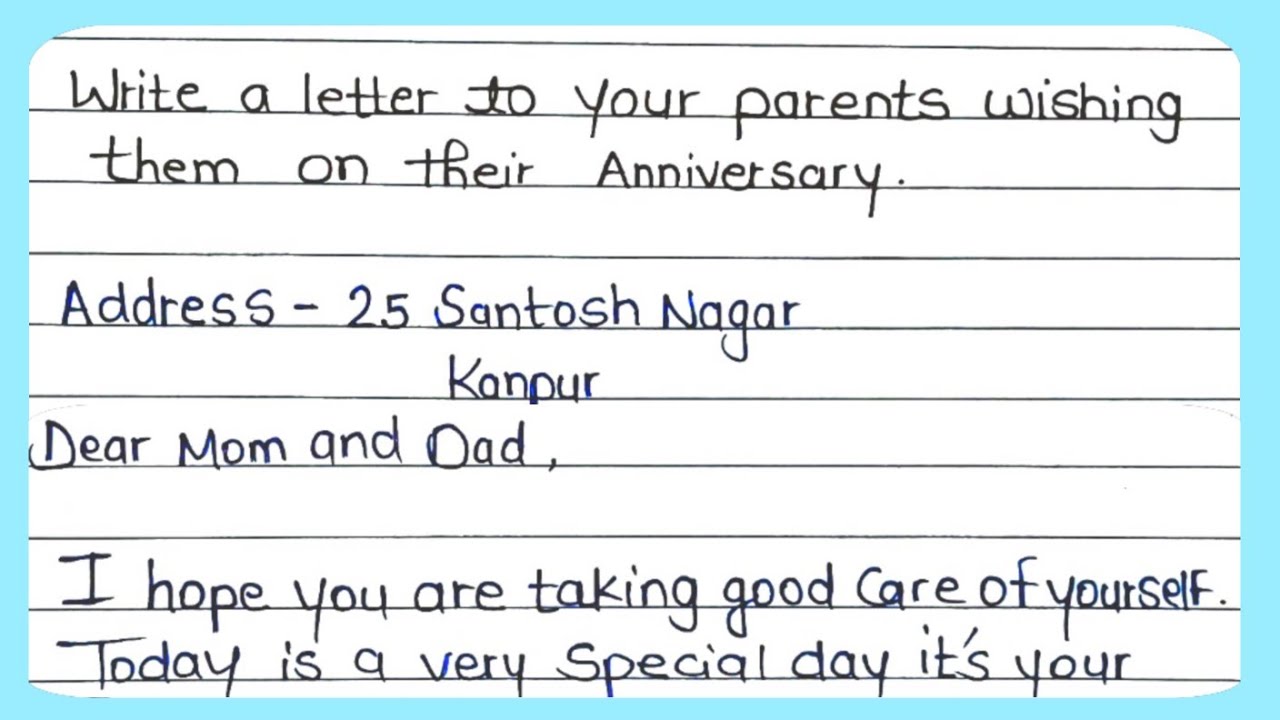 Write a letter to your parents wishing
them on their Anniversary.
Address - 25 Santosh Nagar
Kanpur
Dear Mom and Dad,
I hope you are taking good care of yourself.
Today is a very special day it's your